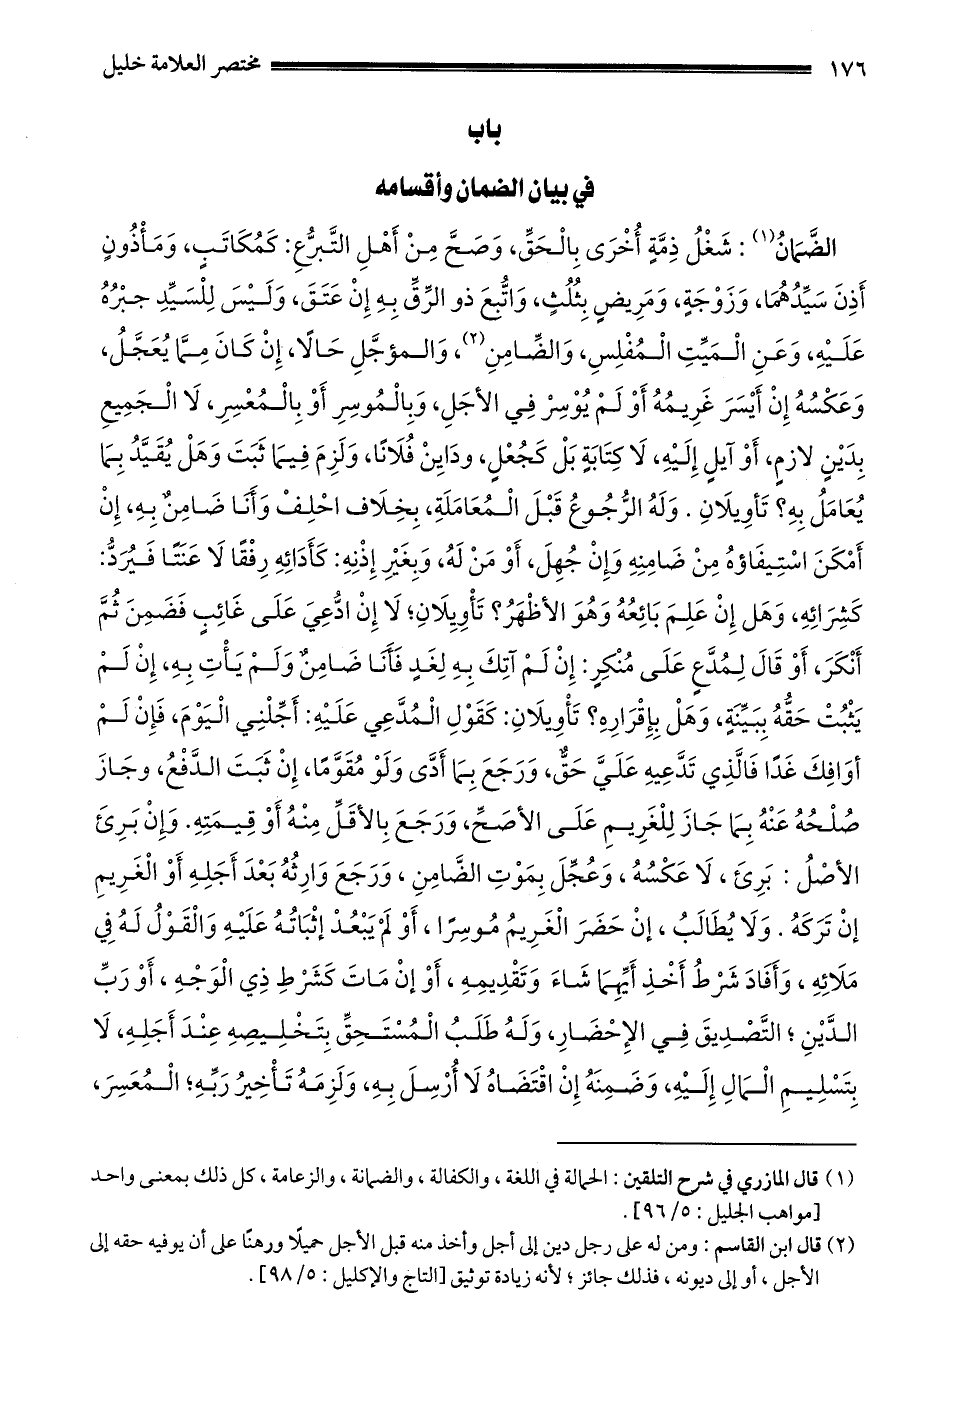 ١٧٦ مختصر العلامة خليل
باب
في بيان الضمان وأقسامه
الضَّمَانُ(١) : شَغْلُ ذِمَّةٍ أُخْرَى بِالْحَقِّ، وَصَحَّ مِنْ أَهْلِ التَّبَرُّعِ: كَمُكَاتَبٍ، وَمَأْذُونٍ
أَذِنَ سَيِّدُهُمَا، وَزَوْجَةٍ، وَمَرِيضٍ بِثُلُثٍ، وَاتُّبِعَ ذو الرِّقِّ بِهِ إِنْ عَتَقَ، وَلَيْسَ لِلْسَيِّدِ جبْرُهُ
عَلَيْهِ، وَعَنِ الْمَيِّتِ الْمُفْلِسِ، وَالضَّامِنِ(٢)، وَالمؤجَّلِ حَالًا، إِنْ كَانَ مِمَّا يُعَجَّلُ،
وَعَكْسُهُ إِنْ أَيْسَرَ غَرِيمُهُ أَوْ لَمْ يُوْسِرْ فِي الأَجَلِ، وَبِالْمُوسِرِ أَوْ بِالْمُعْسِرِ، لَا الْجَمِيعِ
بِدَيْنٍ لازمٍ، أَوْ آيلٍ إِلَيْهِ، لَا كِتَابَةٍ بَلْ كَجُعْلٍ، ودَايِنْ فُلَانًا، وَلَزِمَ فِيمَا ثَبَتَ وَهَلْ يُقَيَّدُ بِمَا
يُعَامَلُ بِهِ؟ تَأوِيلَانِ . وَلَهُ الرُّجُوعُ قَبْلَ الْمُعَامَلَةِ، بِخِلَافِ احْلِفْ وَأَنَا ضَامِنٌ بِهِ، إِنْ
أَمْكَنَ اسْتِيفَاؤُهُ مِنْ ضَامِنِهِ وَإِنْ جُهِلَ، أَوْ مَنْ لَهُ، وَبِغَيْرِ إِذْنِهِ: كَأَدَائِهِ رِفْقًا لَا عَنَتًا فَيُرَدُّ:
كَشِرَائِهِ، وَهَل إِنْ عَلِمَ بَائِعُهُ وَهُوَ الأَظْهَرُ؟ تَأْوِيلَانِ؛ لَا إِنِ ادُّعِيَ عَلَى غَائِبٍ فَضَمِنَ ثُمَّ
أَنْكَرَ، أَوْ قَالَ لِمُدَّعٍ عَلَى مُنْكِرٍ: إِنْ لَمْ آتِكَ بِهِ لِغَدٍ فَأَنَا ضَامِنٌ وَلَمْ يَأْتِ بِهِ، إِنْ لَمْ
يَثْبُتْ حَقُّهُ بِبَيِّنَةٍ، وَهَلْ بِإِقْرَارِهِ؟ تَأْوِيلَانِ: كَقَوْلِ الْمُدَّعِي عَلَيْهِ: أَجِّلْنِي الْيَوْمَ، فَإِنْ لَمْ
أوَافِكَ غَدًا فَالَّذِي تَدَّعِيهِ عَلَيَّ حَقٌّ، وَرَجَعَ بِمَا أَدَّى وَلَوْ مُقَوَّمًا، إِنْ ثَبَتَ الدَّفْعُ، وجَازَ
صُلْحُهُ عَنْهُ بِمَا جَازَ لِلْغَرِيمِ عَلَى الأصَحِّ، وَرَجَعَ بِالأَقَلِّ مِنْهُ أَوْ قِيمَتِهِ. وَإِنْ بَرِئَ
الأَصْلُ : بَرِئَ ، لَا عَكْسُهُ ، وَعُجِّلَ بِمَوْتِ الضَّامِنِ ، وَرَجَعَ وَارِثُهُ بَعْدَ أَجَلِهِ أَوْ الْغَرِيمِ
إِنْ تَرَكَهُ . وَلَا يُطَالَبُ ، إِنْ حَضَرَ الْغَرِيمُ مُوسِرًا ، أَوْ لَمْ يَبْعُدْ إِثْبَاتُهُ عَلَيْهِ وَالْقَوْلُ لَهُ فِي
مَلَائِهِ ، وَأَفَادَ شَرْطُ أَخْذِ أَيِّهِمَا شَاءَ وَتَقْدِيمِهِ ، أَوْ إِنْ مَاتَ كَشَرْطِ ذِي الْوَجْهِ ، أَوْ رَبِّ
الدَّيْنِ ؛ التَّصْدِيقَ فِي الإحْضَارِ، وَلَهُ طَلَبُ الْمُسْتَحِقِّ بِتَخْلِيصِهِ عِنْدَ أَجَلِهِ، لَا
بِتَسْلِيمِ الْمَالِ إِلَيْهِ، وَضَمِنَهُ إِنْ اقْتَضَاهُ لَا أُرْسِلَ بِهِ، وَلَزِمَهُ تَأْخِيرُ رَبِّهِ؛ الْمُعْسَرَ،
(١) قال المازري في شرح التلقين : الحمالة في اللغة ، والكفالة ، والضمانة ، والزعامة ، كل ذلك بمعنى واحد
[مواهب الجليل : ٥/ ٩٦] .
(٢) قال ابن القاسم : ومن له على رجل دين إلى أجل وأخذ منه قبل الأجل حميلًا ورهنًا على أن يوفيه حقه إلى
الأجل ، أو إلى ديونه ، فذلك جائز ؛ لأنه زيادة توثيق [التاج والإكليل : ٥/ ٩٨] .